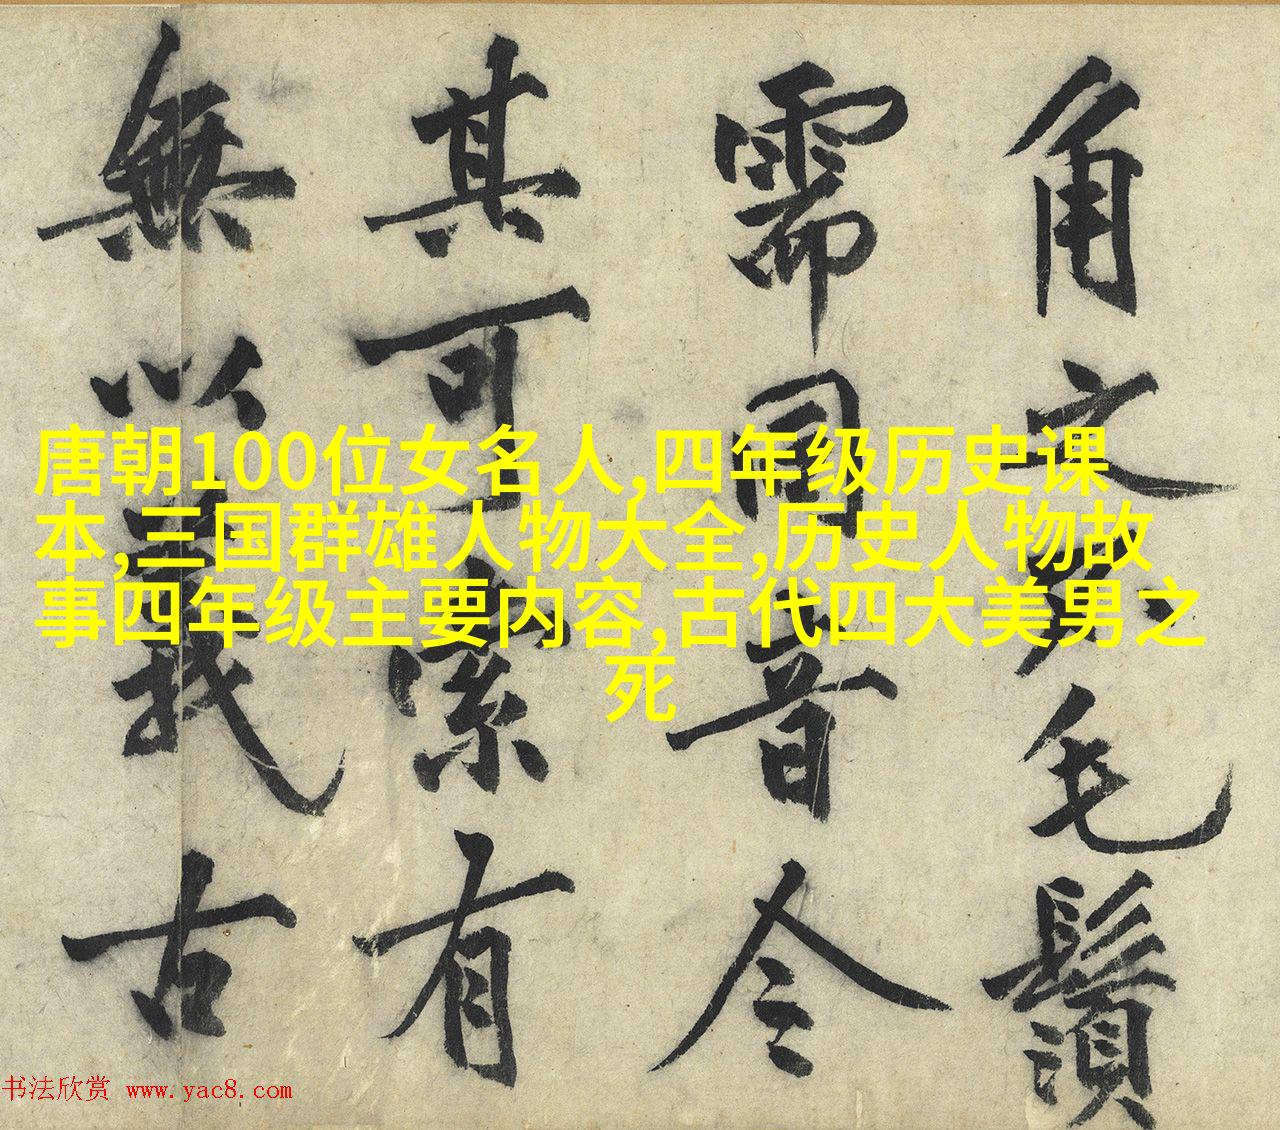 角毛鬚
需昔今
其可索有
無以義古
唐朝100位女名人,四年级历史课
本,三国群雄人物大全,历史人物故
事四年级主要内容,古代四大美男之
死
书法欣赏 www.yac8.com